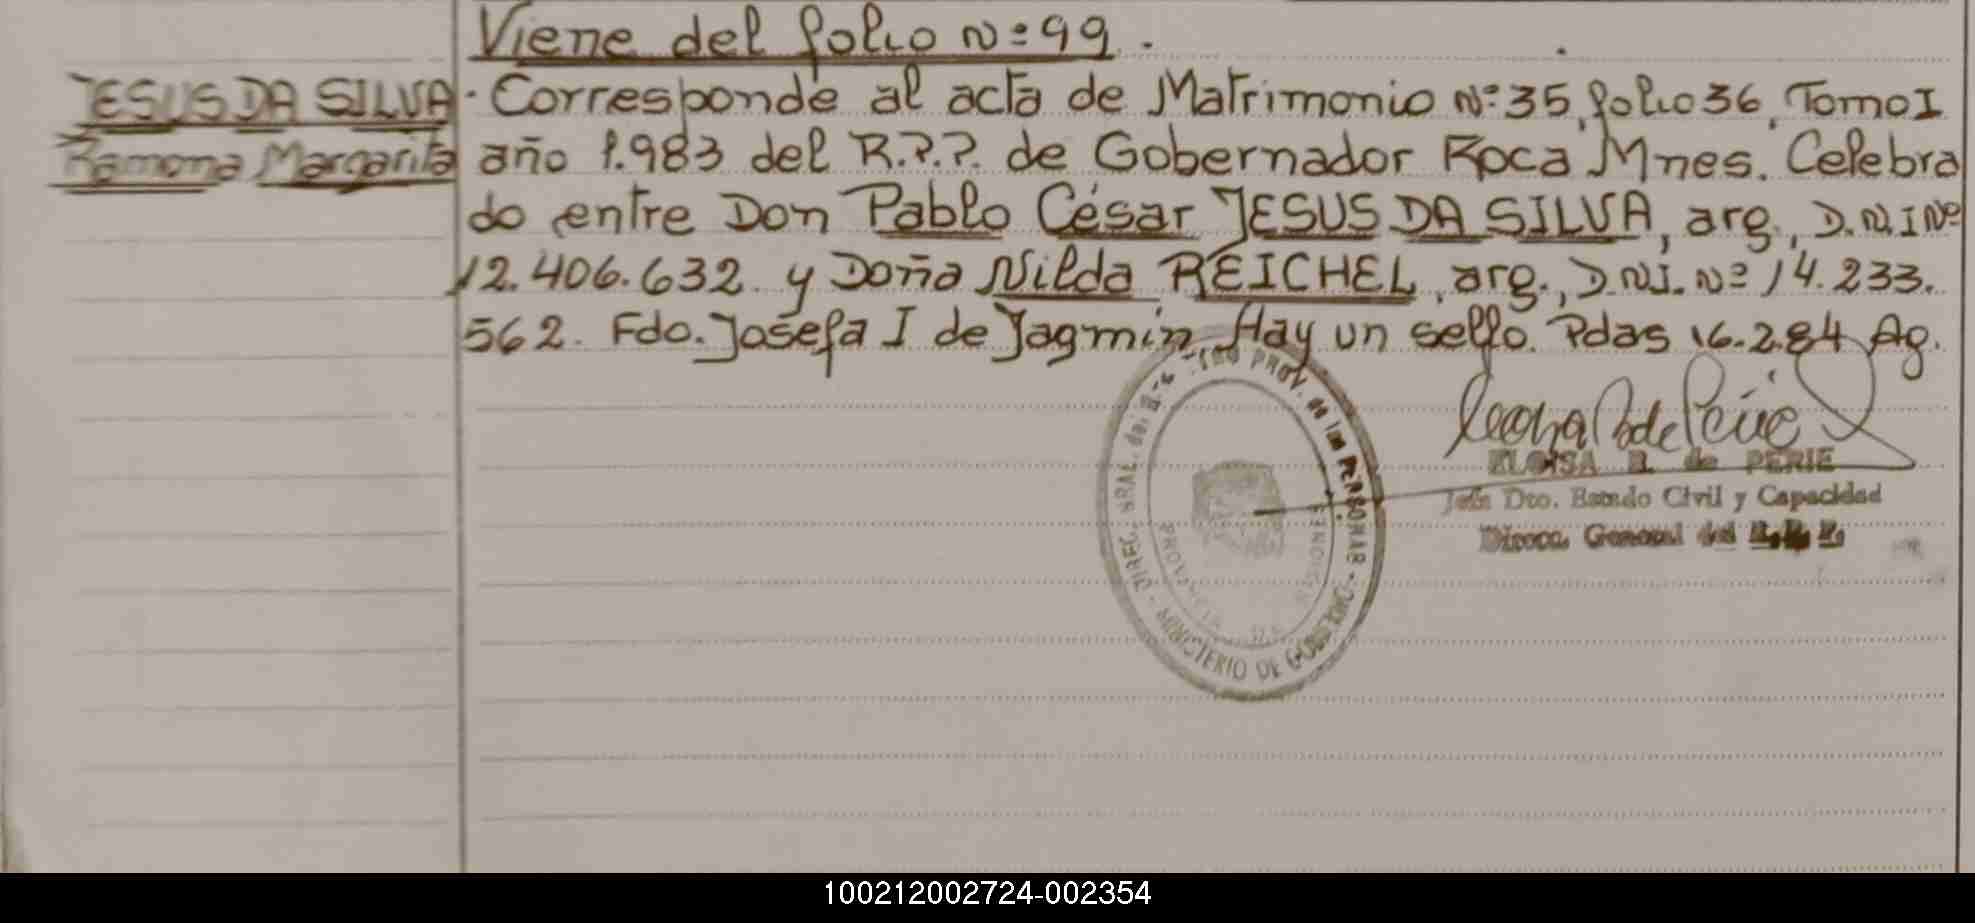 Viene del folio Nº 99.
JESUS DA SILVA
Ramona Margarita
- Corresponde al acta de Matrimonio Nº 35, folio 36, Tomo I
año 1.983 del R.P.P. de Gobernador Roca Mnes. Celebra
do entre Don Pablo César JESUS DA SILVA, arg., D.N.I Nº
12.406.632. y Doña Nilda REICHEL, arg., D.N.I. Nº 14.233.
562. Fdo. Josefa I de Jagmin Hay un sello. Pdas 16.2.84 Ag.
ELOISA R. de PERIE
Jefe Dto. Estado Civil y Capacidad
Direcc. General del R.P.P.
PROV. de las PERSONAS - MINISTERIO DE GOBIERNO -
PROVINCIA MISIONES
100212002724-002354